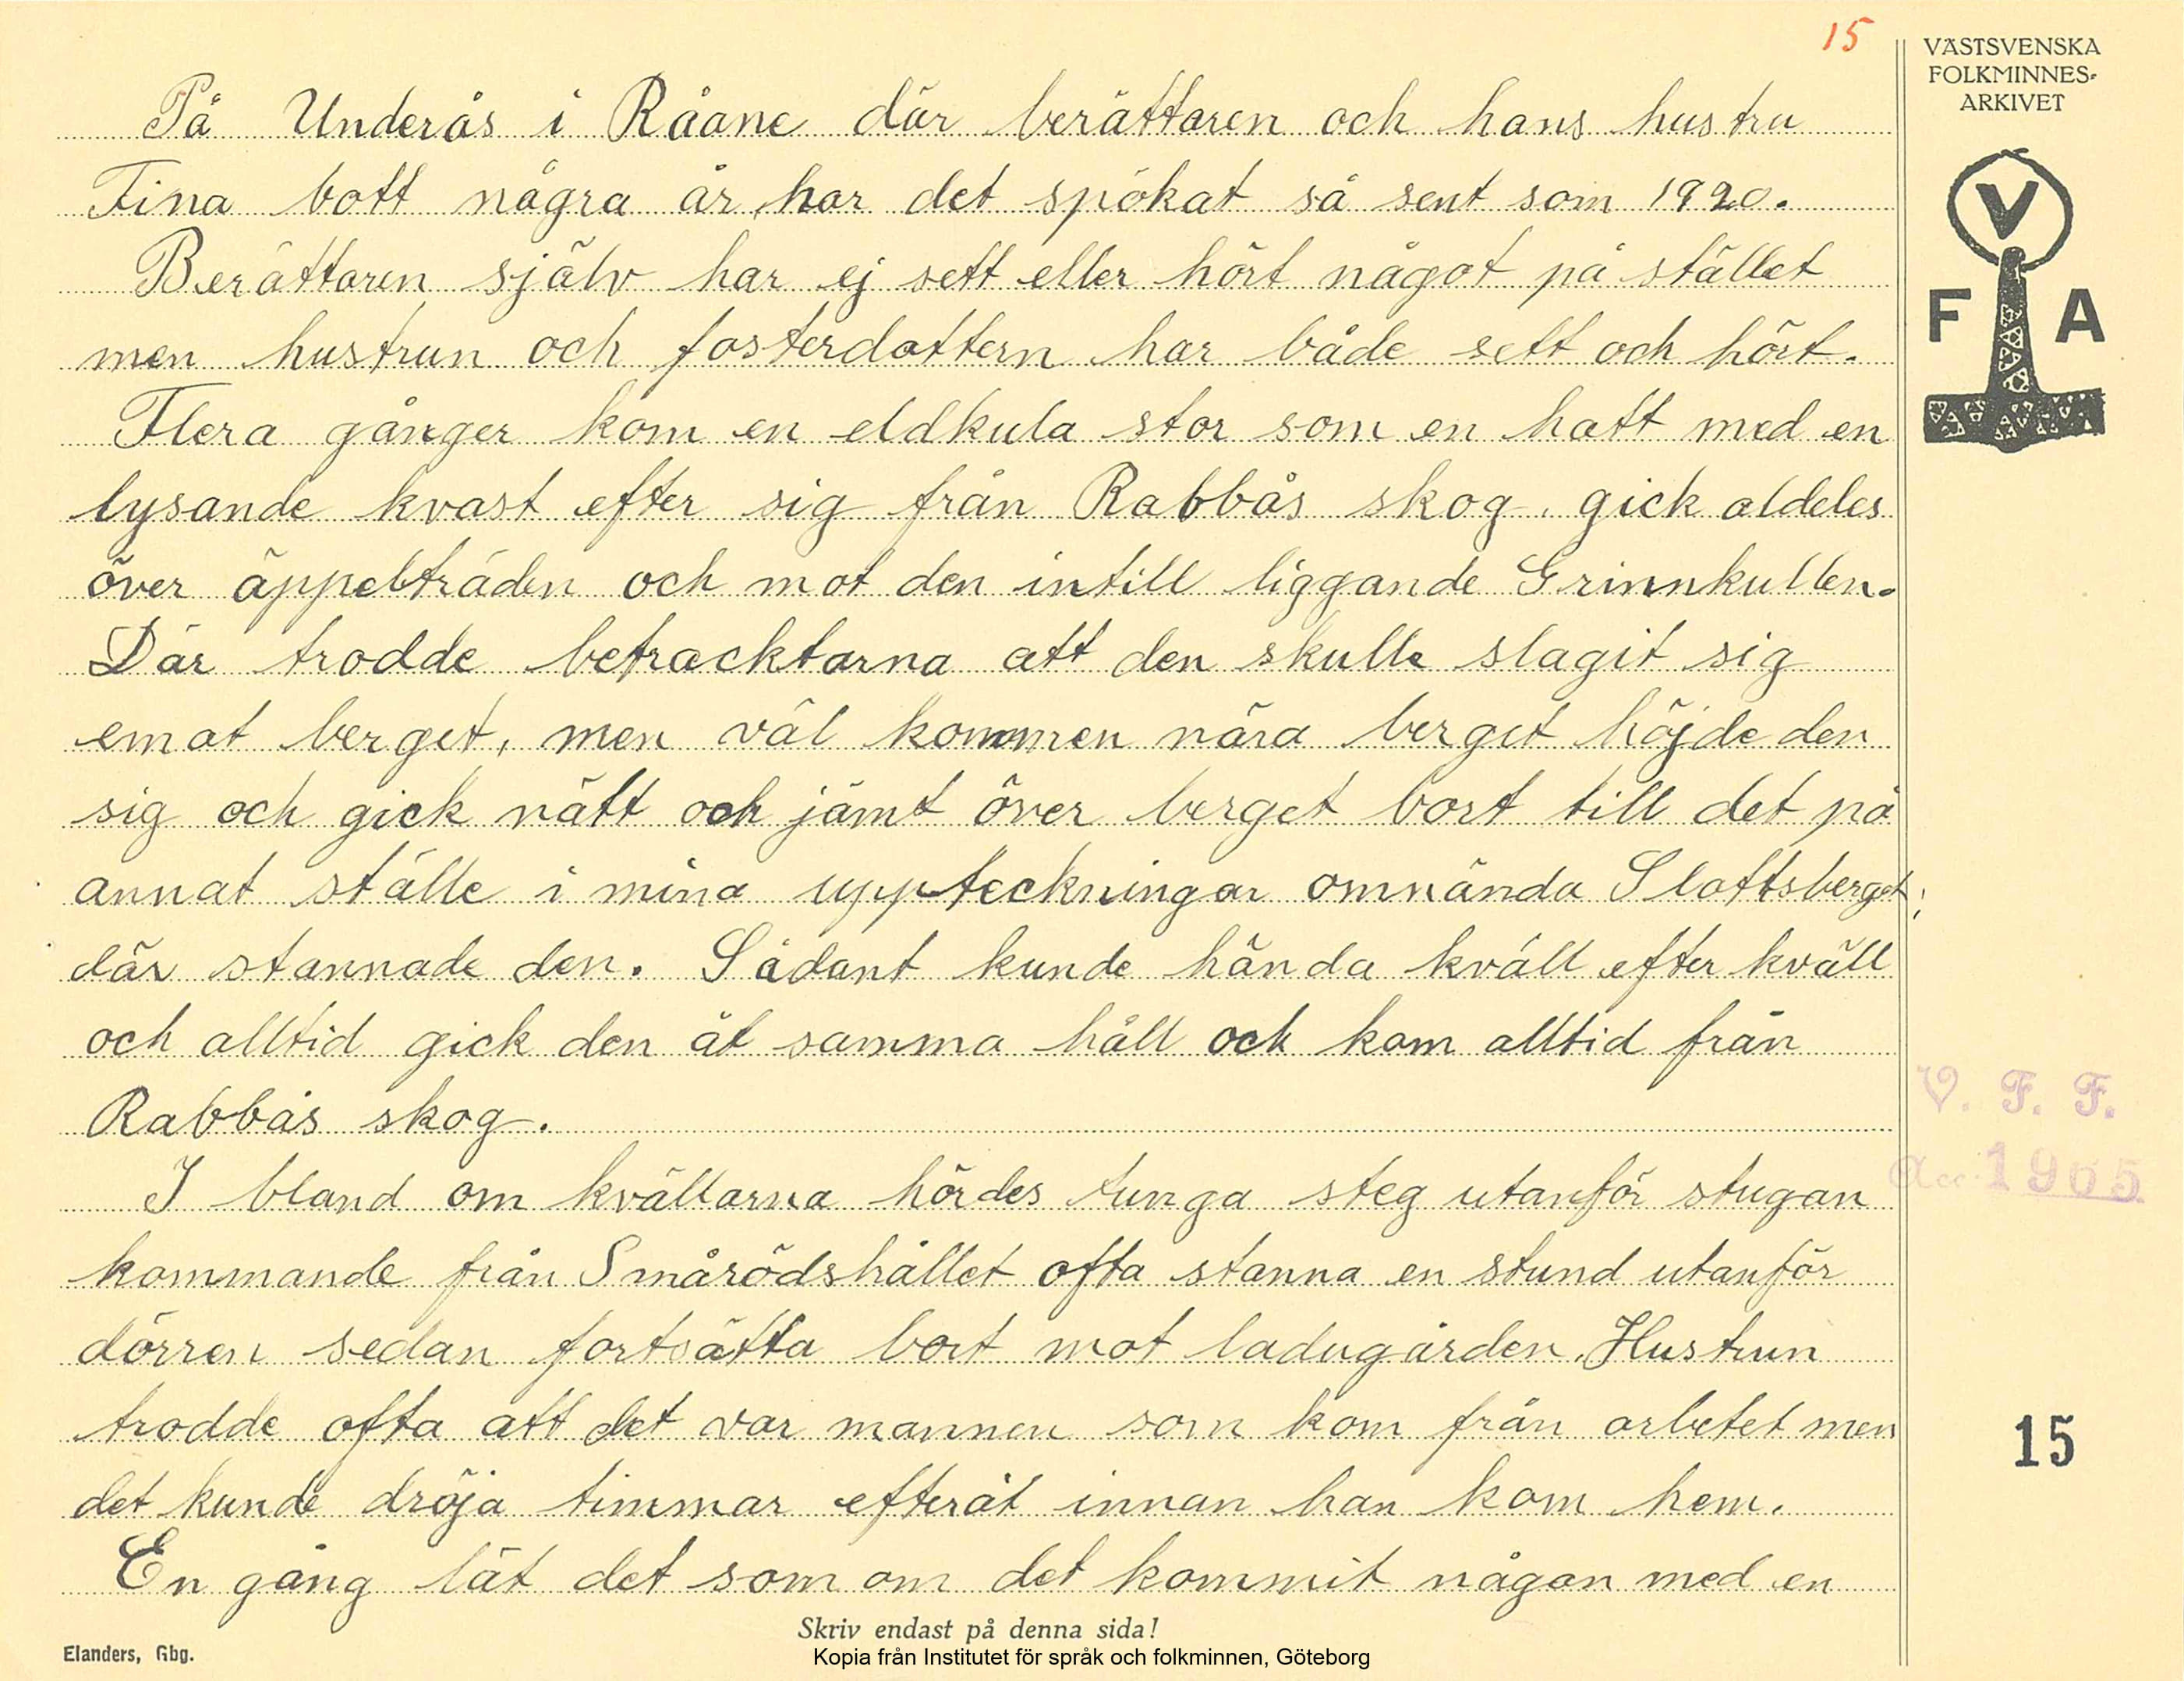 15
VÄSTSVENSKA
FOLKMINNES-
ARKIVET
V
F A
På Underås i Råane där berättaren och hans hustru
Fina bott några år, har det spökat så sent som 1920.
Berättaren själv har ej sett eller hört något på stället
men hustrun och fosterdottern har både sett och hört.
Flera gånger kom en eldkula stor som en hatt med en
lysande kvast efter sig från Rabbås skog, gick aldeles
över äppelträden och mot den intill liggande Grinnkullen.
Där trodde betracktarna att den skulle slagit sig
emot berget, men väl kommen nära berget höjde den
sig och gick nätt och jämt över berget bort till det på
annat ställe i mina uppteckningar omnända Slottsberget;
där stannade den. Sådant kunde hända kväll efter kväll
och alltid gick den åt samma håll och kom alltid från
Rabbås skog.
I bland om kvällarna hördes tunga steg utanför stugan
kommande från Smårödshållet ofta stanna en stund utanför
dörren sedan fortsätta bort mot ladugården. Hustrun
trodde ofta att det var mannen som kom från arbetet men
det kunde dröja timmar efteråt innan han kom hem.
En gång lät det som om det kommit någon med en
V. F. F.
Acc. 1965
15
Skriv endast på denna sida!
Elanders, Gbg.
Kopia från Institutet för språk och folkminnen, Göteborg